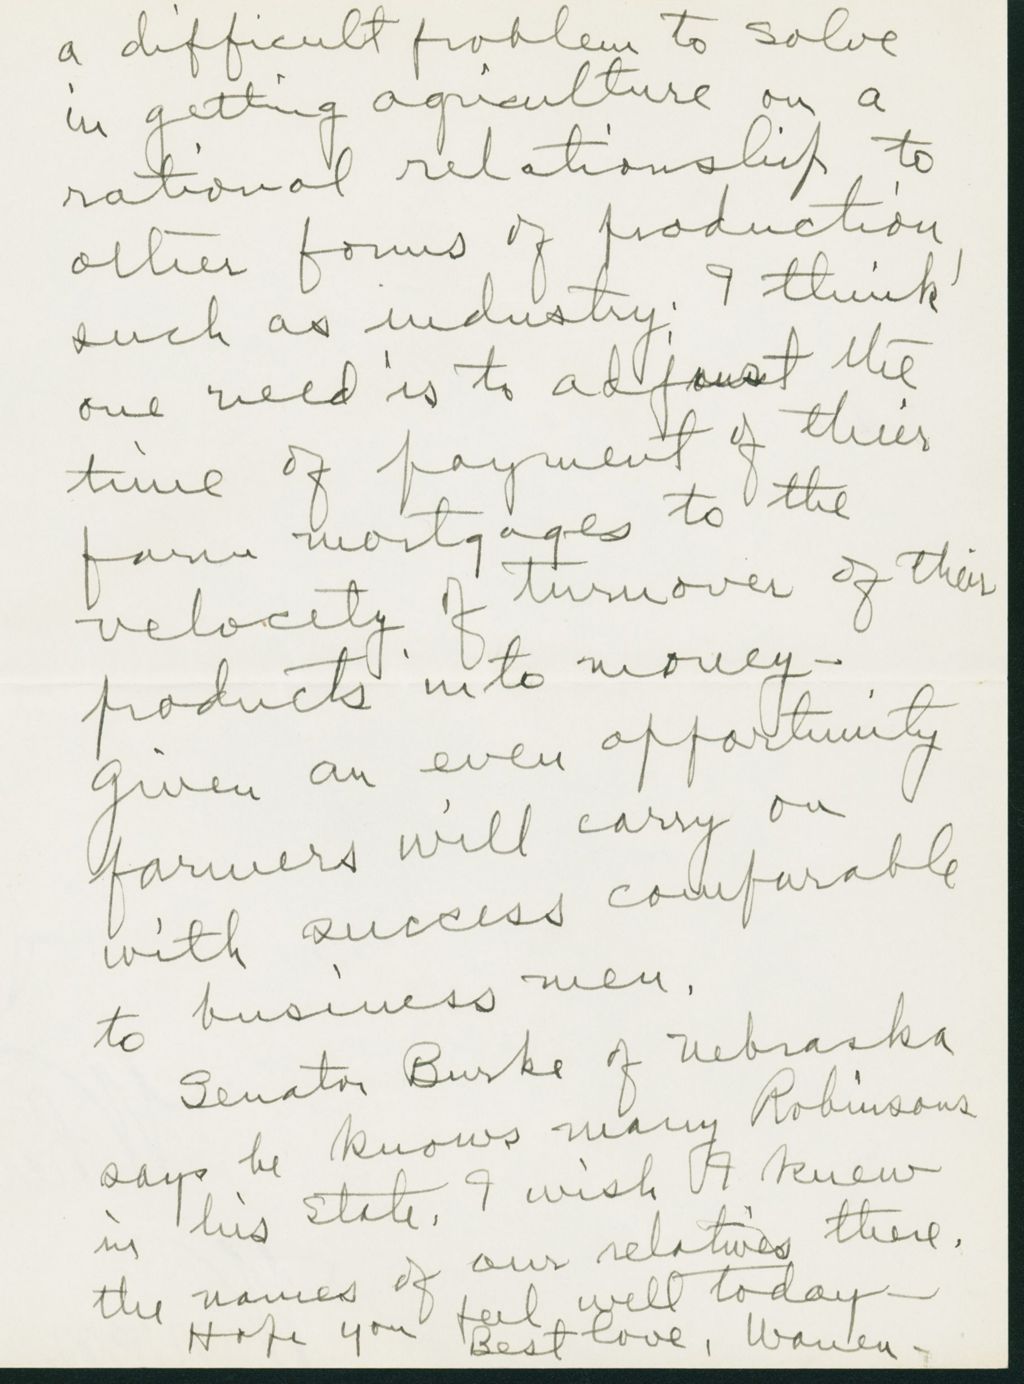 a difficult problem to solve
in getting agriculture on a
rational relationship to
other forms of production,
such as industry. I think
one need is to adjust the
time of payment of their
farm mortgages to the
velocity of turnover of their
products into money—
given an even opportunity
farmers will carry on
with success comparable
to business men.
Senator Burke of Nebraska
says he knows many Robinsons
in his State. I wish I knew
the names of our relatives there.
Hope you feel well today—
Best love, Warren—